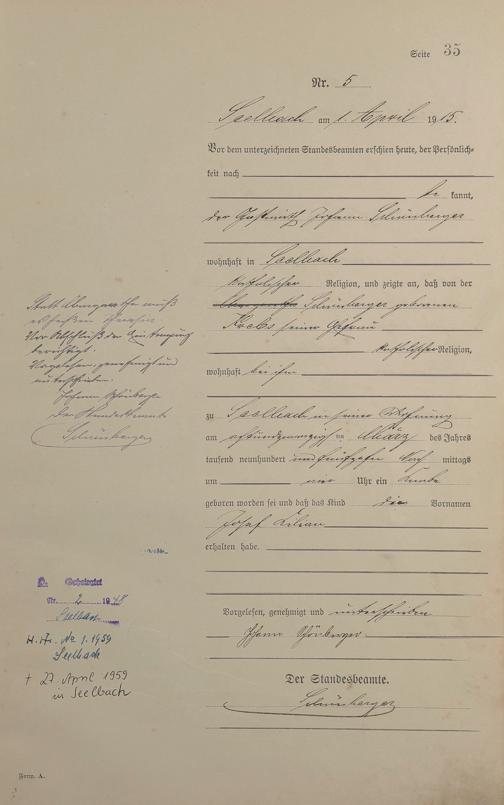 Seite 35
Nr. 5
Seelbach am 1. April 1915.
Vor dem unterzeichneten Standesbeamten erschien heute, der Persönlich-
keit nach
be kannt,
der Gastwirth Johann Schönberger
wohnhaft in Seelbach
katholischer Religion, und zeigte an, daß von der
Schönberger geborenen
Krebs seiner Ehefrau
katholischer Religion,
wohnhaft bei ihm
zu Seelbach in seiner Wohnung
am achtundzwanzigsten März des Jahres
tausend neunhundert und fünfzehn Nach mittags
um vier Uhr ein Knabe
geboren worden sei und daß das Kind die Vornamen
Josef
erhalten habe.
Vorgelesen, genehmigt und unterschrieben
Johann Schönberger
Der Standesbeamte.
Schönberger
Statt
Vor Abschluß der Eintragung
berichtigt.
Vorgelesen, genehmigt und
unterschrieben.
Johann Schönberger
Der Standesbeamte
Schönberger
Geheiratet
Nr. 2 1948
Seelbach
No 1.1959
Seelbach
† 27. April 1959
in Seelbach
Form. A.